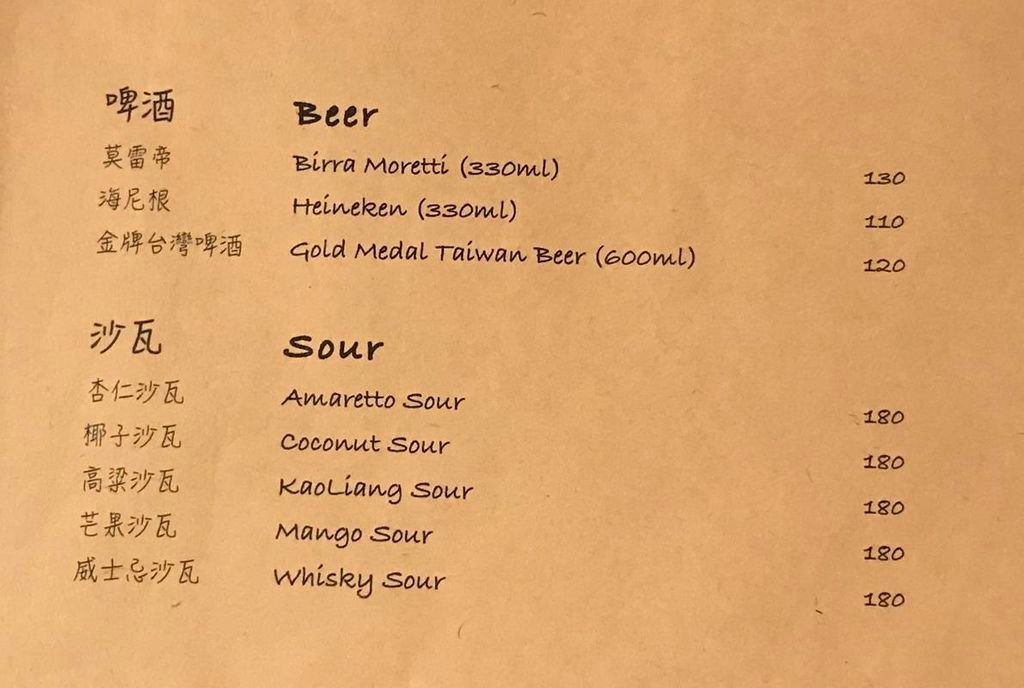 啤酒 Beer
莫雷帝 Birra Moretti (330ml) 130
海尼根 Heineken (330ml) 110
金牌台灣啤酒 Gold Medal Taiwan Beer (600ml) 120
沙瓦 Sour
杏仁沙瓦 Amaretto Sour 180
椰子沙瓦 Coconut Sour 180
高粱沙瓦 KaoLiang Sour 180
芒果沙瓦 Mango Sour 180
威士忌沙瓦 Whisky Sour 180